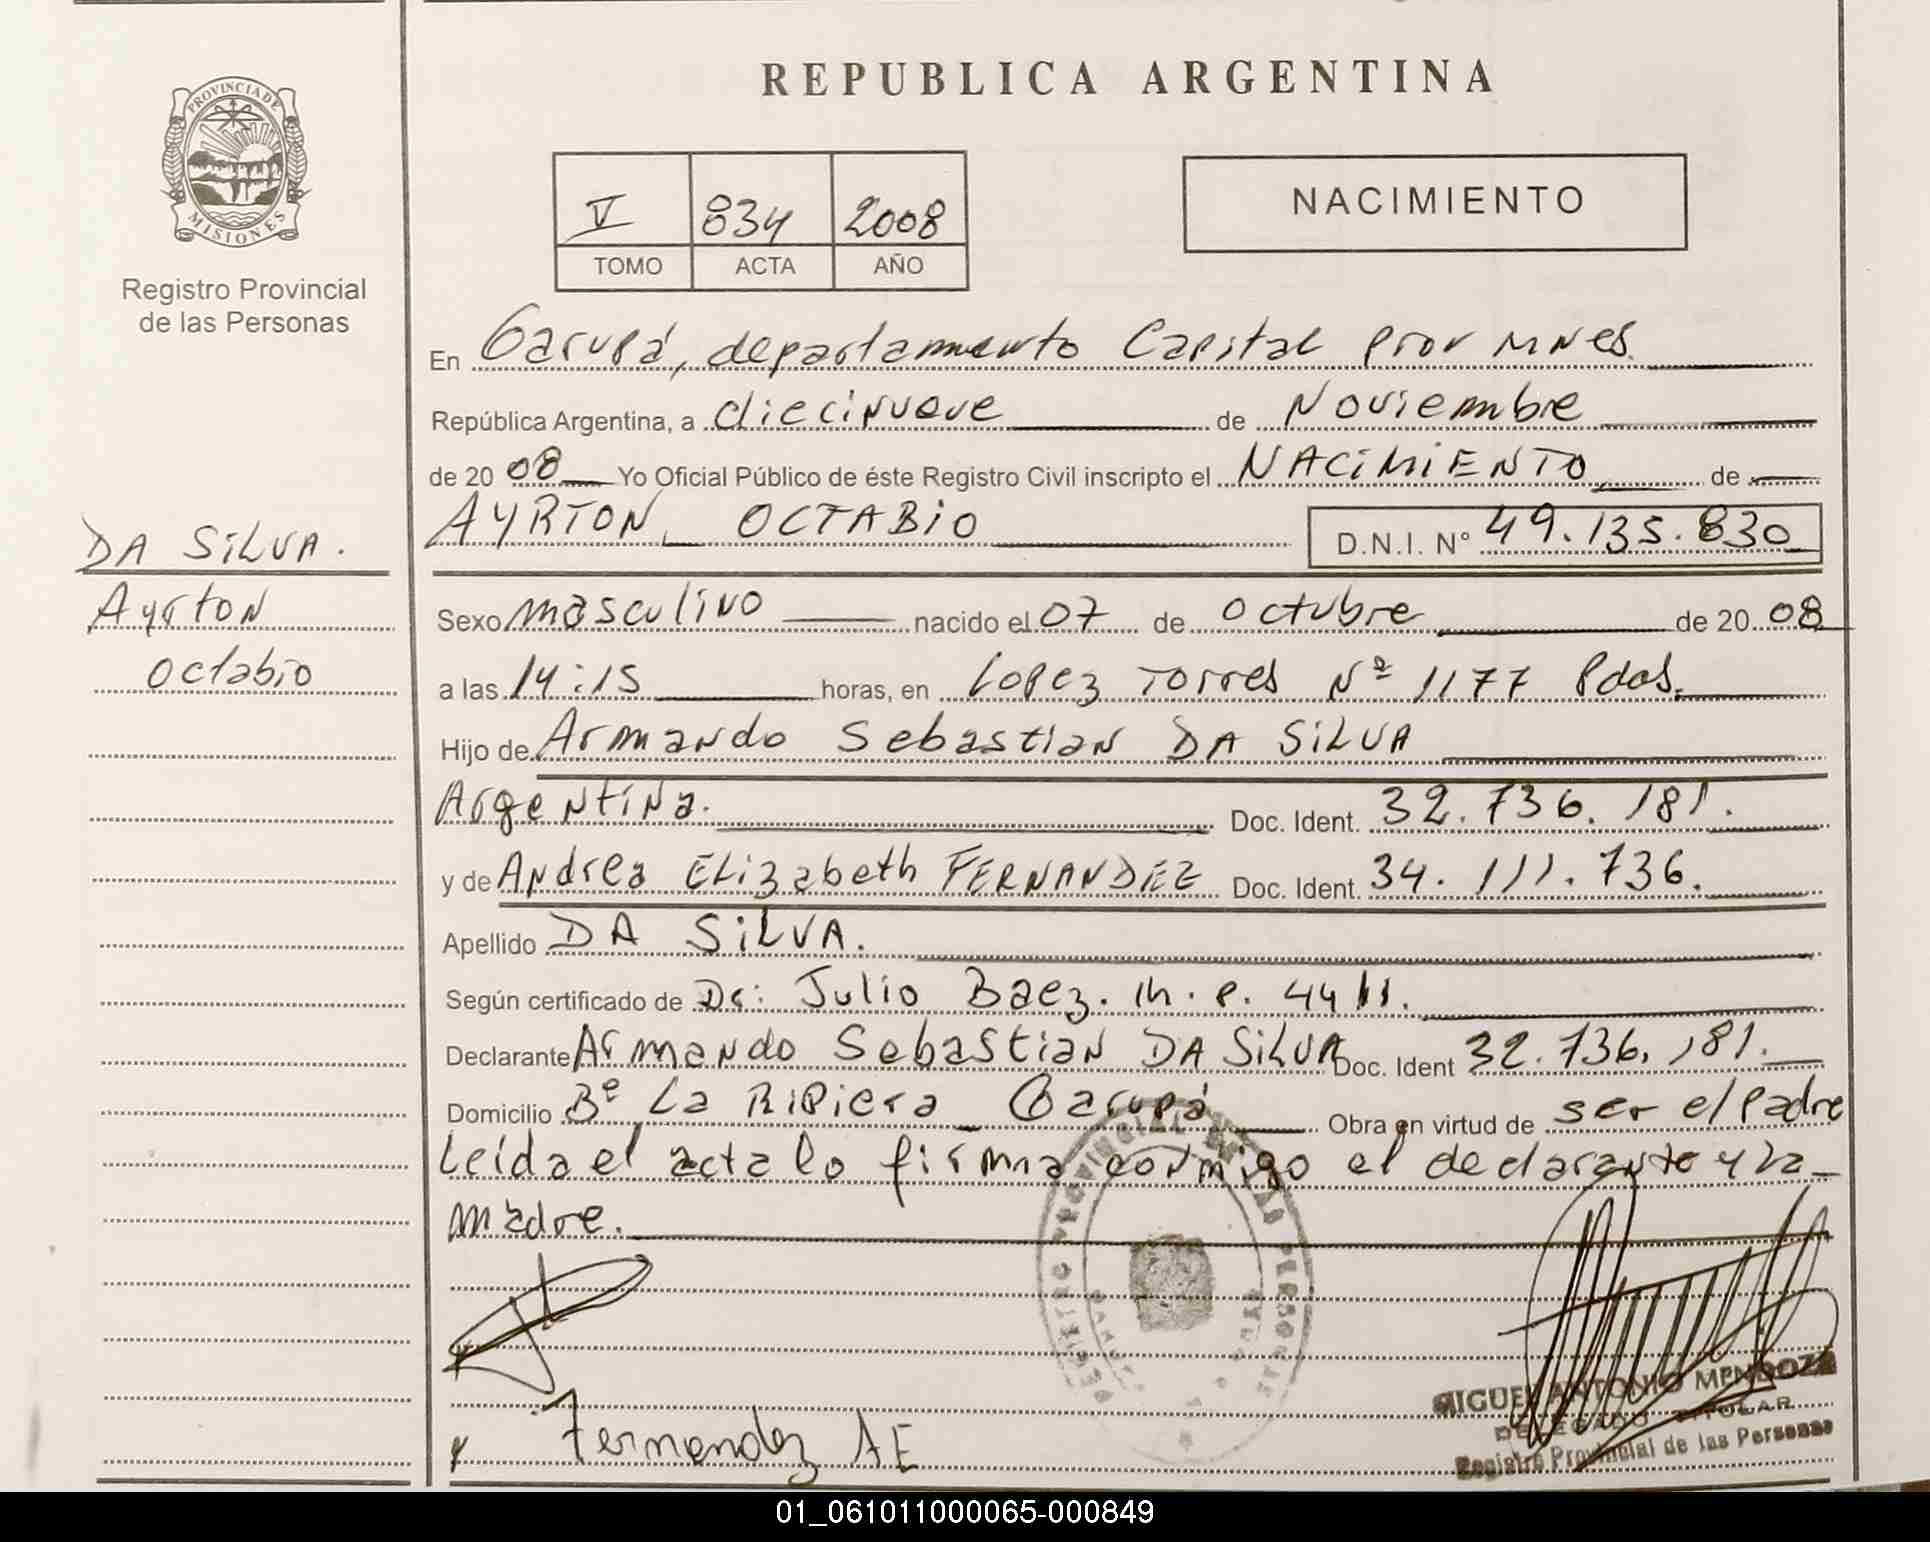 PROVINCIA DE
MISIONES
Registro Provincial
de las Personas
DA SILVA.
Ayrton
Octabio
REPUBLICA ARGENTINA
V 834 2008
TOMO ACTA AÑO
NACIMIENTO
En Garupá, departamento Capital Prov MNes.
República Argentina, a diecinueve de Noviembre
de 20 08 Yo Oficial Público de éste Registro Civil inscripto el NACIMIENTO de
AYRTON OCTABIO D.N.I. N° 49.135.830
Sexo masculino nacido el 07 de Octubre de 20 08
a las 14:15 horas, en Lopez Torres Nº 1177 Pdas.
Hijo de Armando Sebastian DA SILVA
Argentina. Doc. Ident. 32.736.181.
y de Andrea Elizabeth FERNANDEZ Doc. Ident. 34.111.736.
Apellido DA SILVA.
Según certificado de Dr: Julio Baez. M.P. 4411.
Declarante Armando Sebastian DA SILVA Doc. Ident 32.736.181.
Domicilio Bº La Ribiera Garupá Obra en virtud de ser el Padre
Leída el acta lo firma conmigo el declarante y la
madre.
REGISTRO PROVINCIAL DE LAS PERSONAS
Fernandez AE
MIGUEL ANTONIO MENDOZA
DELEGADO TITULAR
Registro Provincial de las Personas
01_061011000065-000849